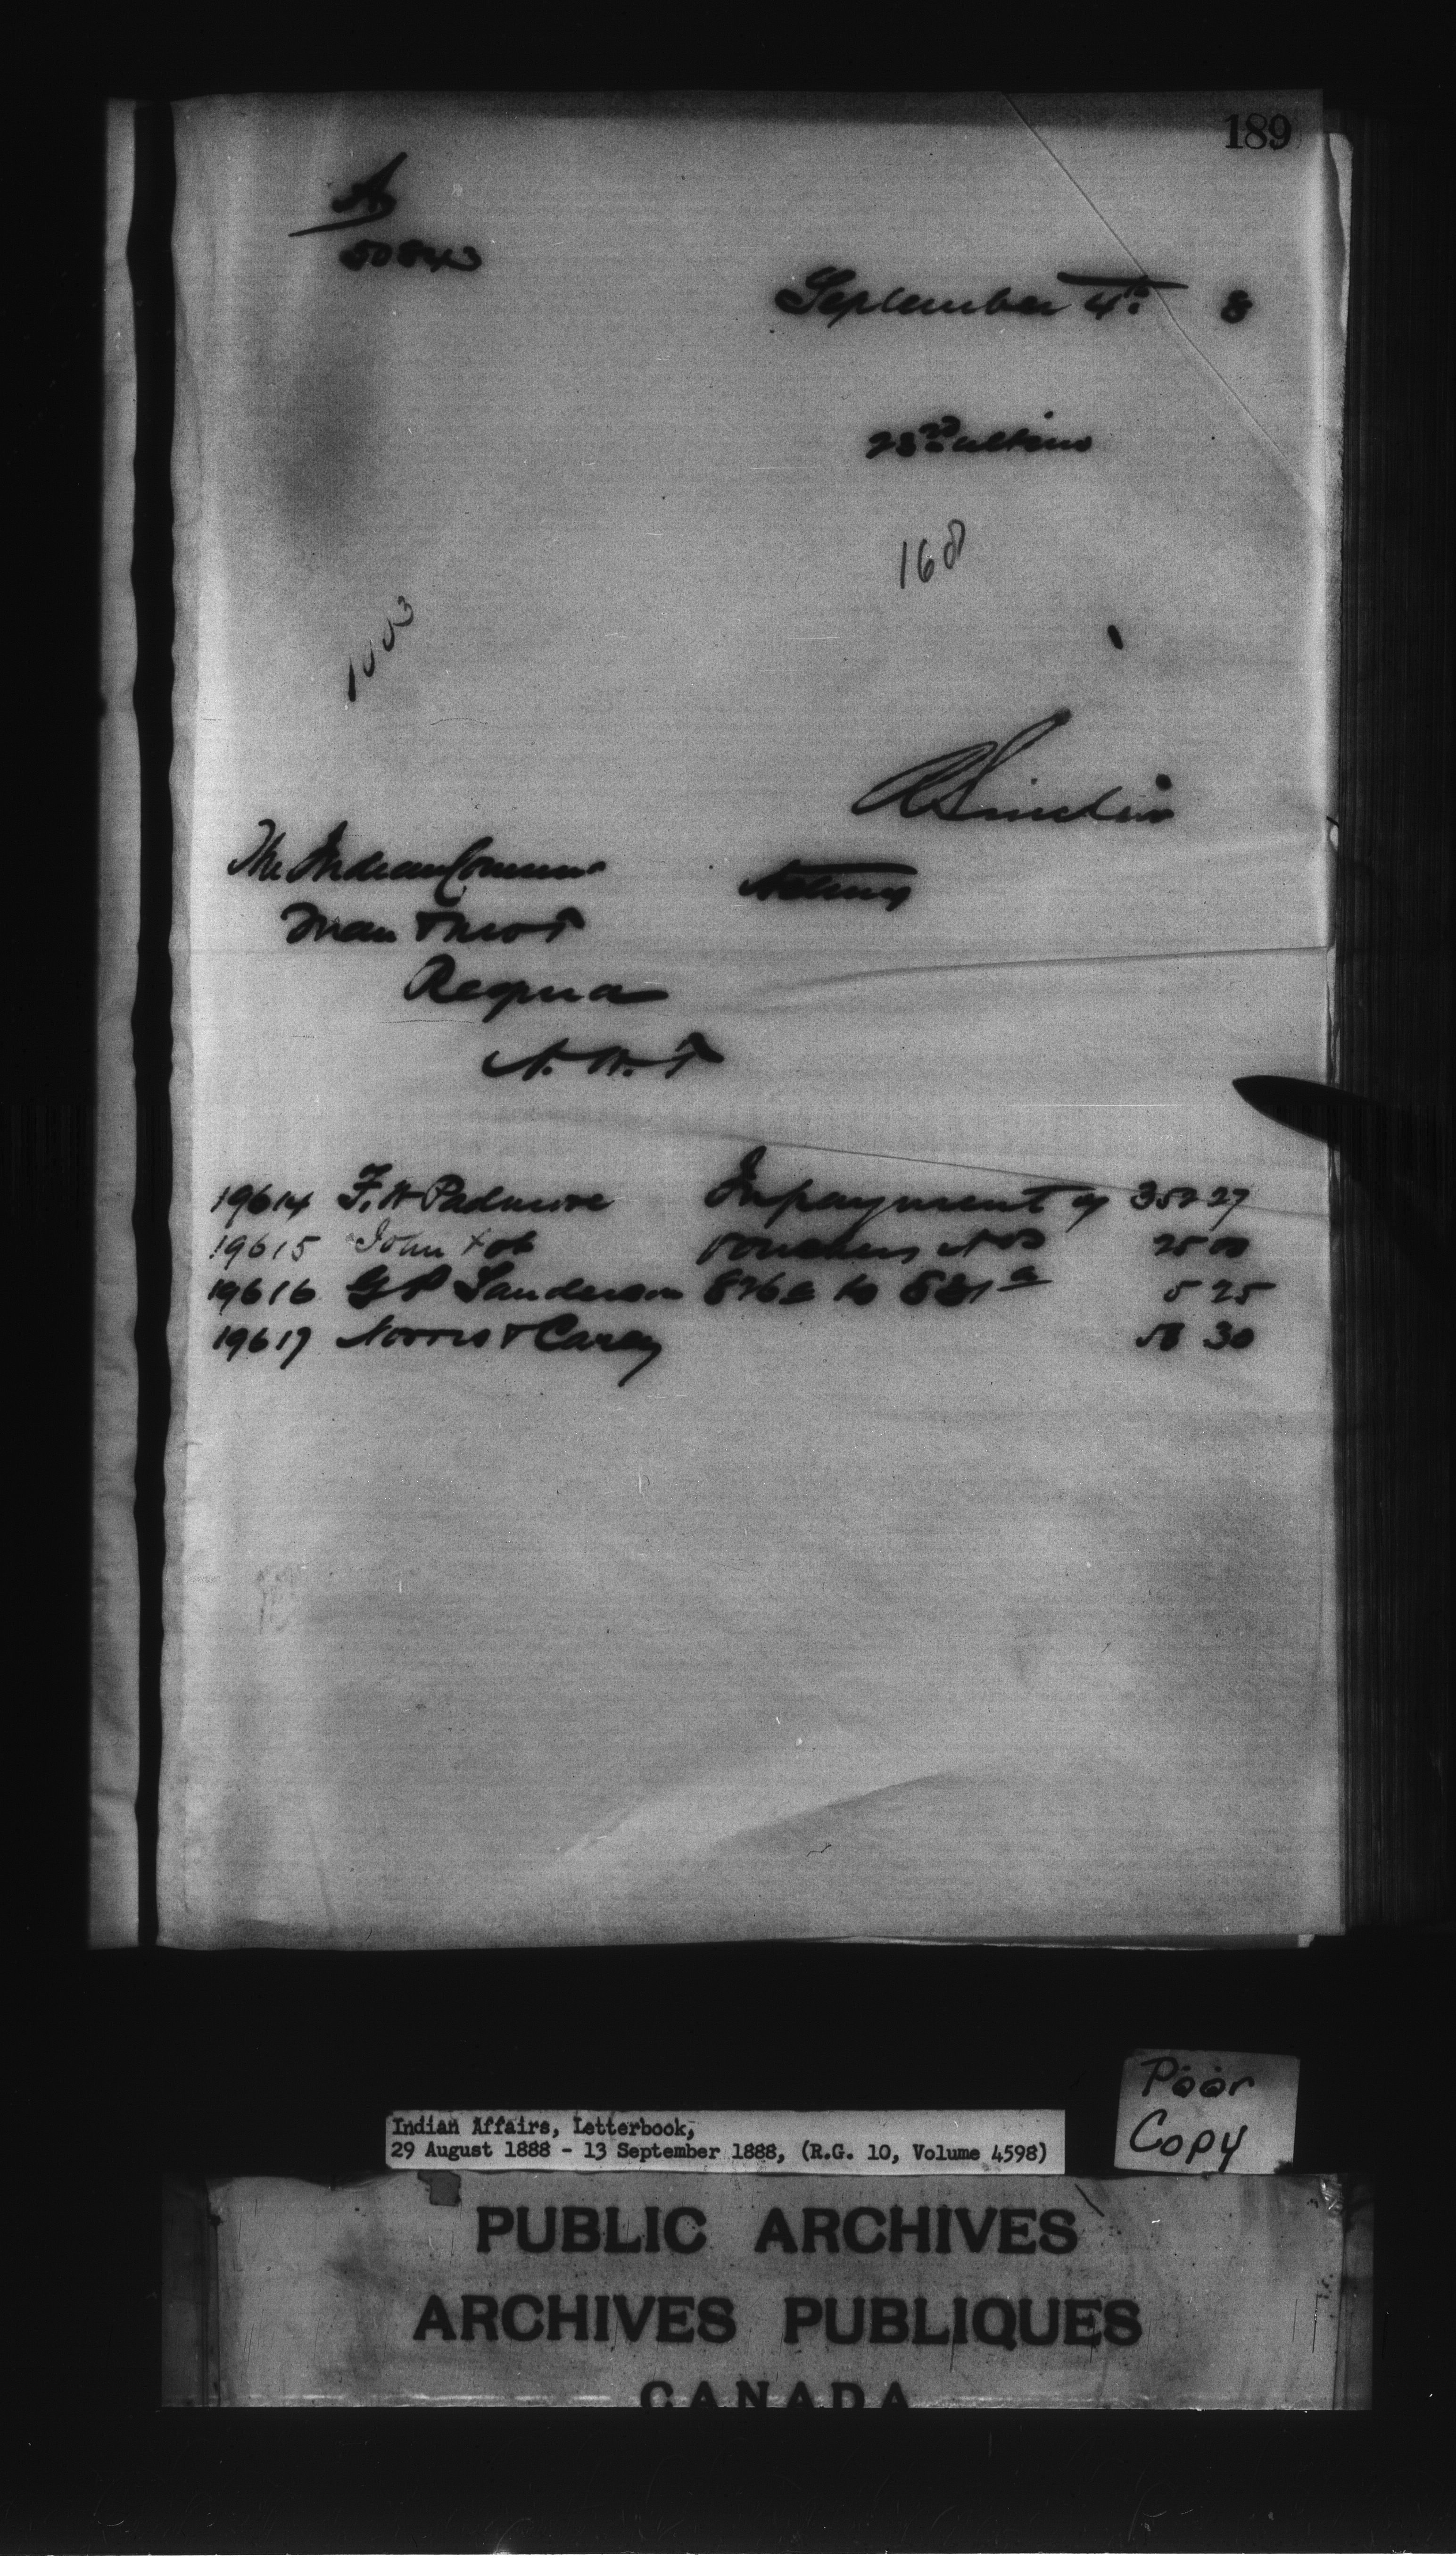 189
A
50843
September 4th 8
23rd ultimo
168
1003
R Sinclair
The Indian Commr
Acting
Man & NWT
Regina
N.W.T
19614 F. W Padmore In payment of 352 27
19615 John Fob vouchers Nos 25 00
19616 G P Sanderson 876a to 881a 5 25
19617 Norris & Carey 58 30
Poor
Copy
Indian Affairs, Letterbook,
29 August 1888 - 13 September 1888, (R.G. 10, Volume 4598)
PUBLIC ARCHIVES
ARCHIVES PUBLIQUES
CANADA